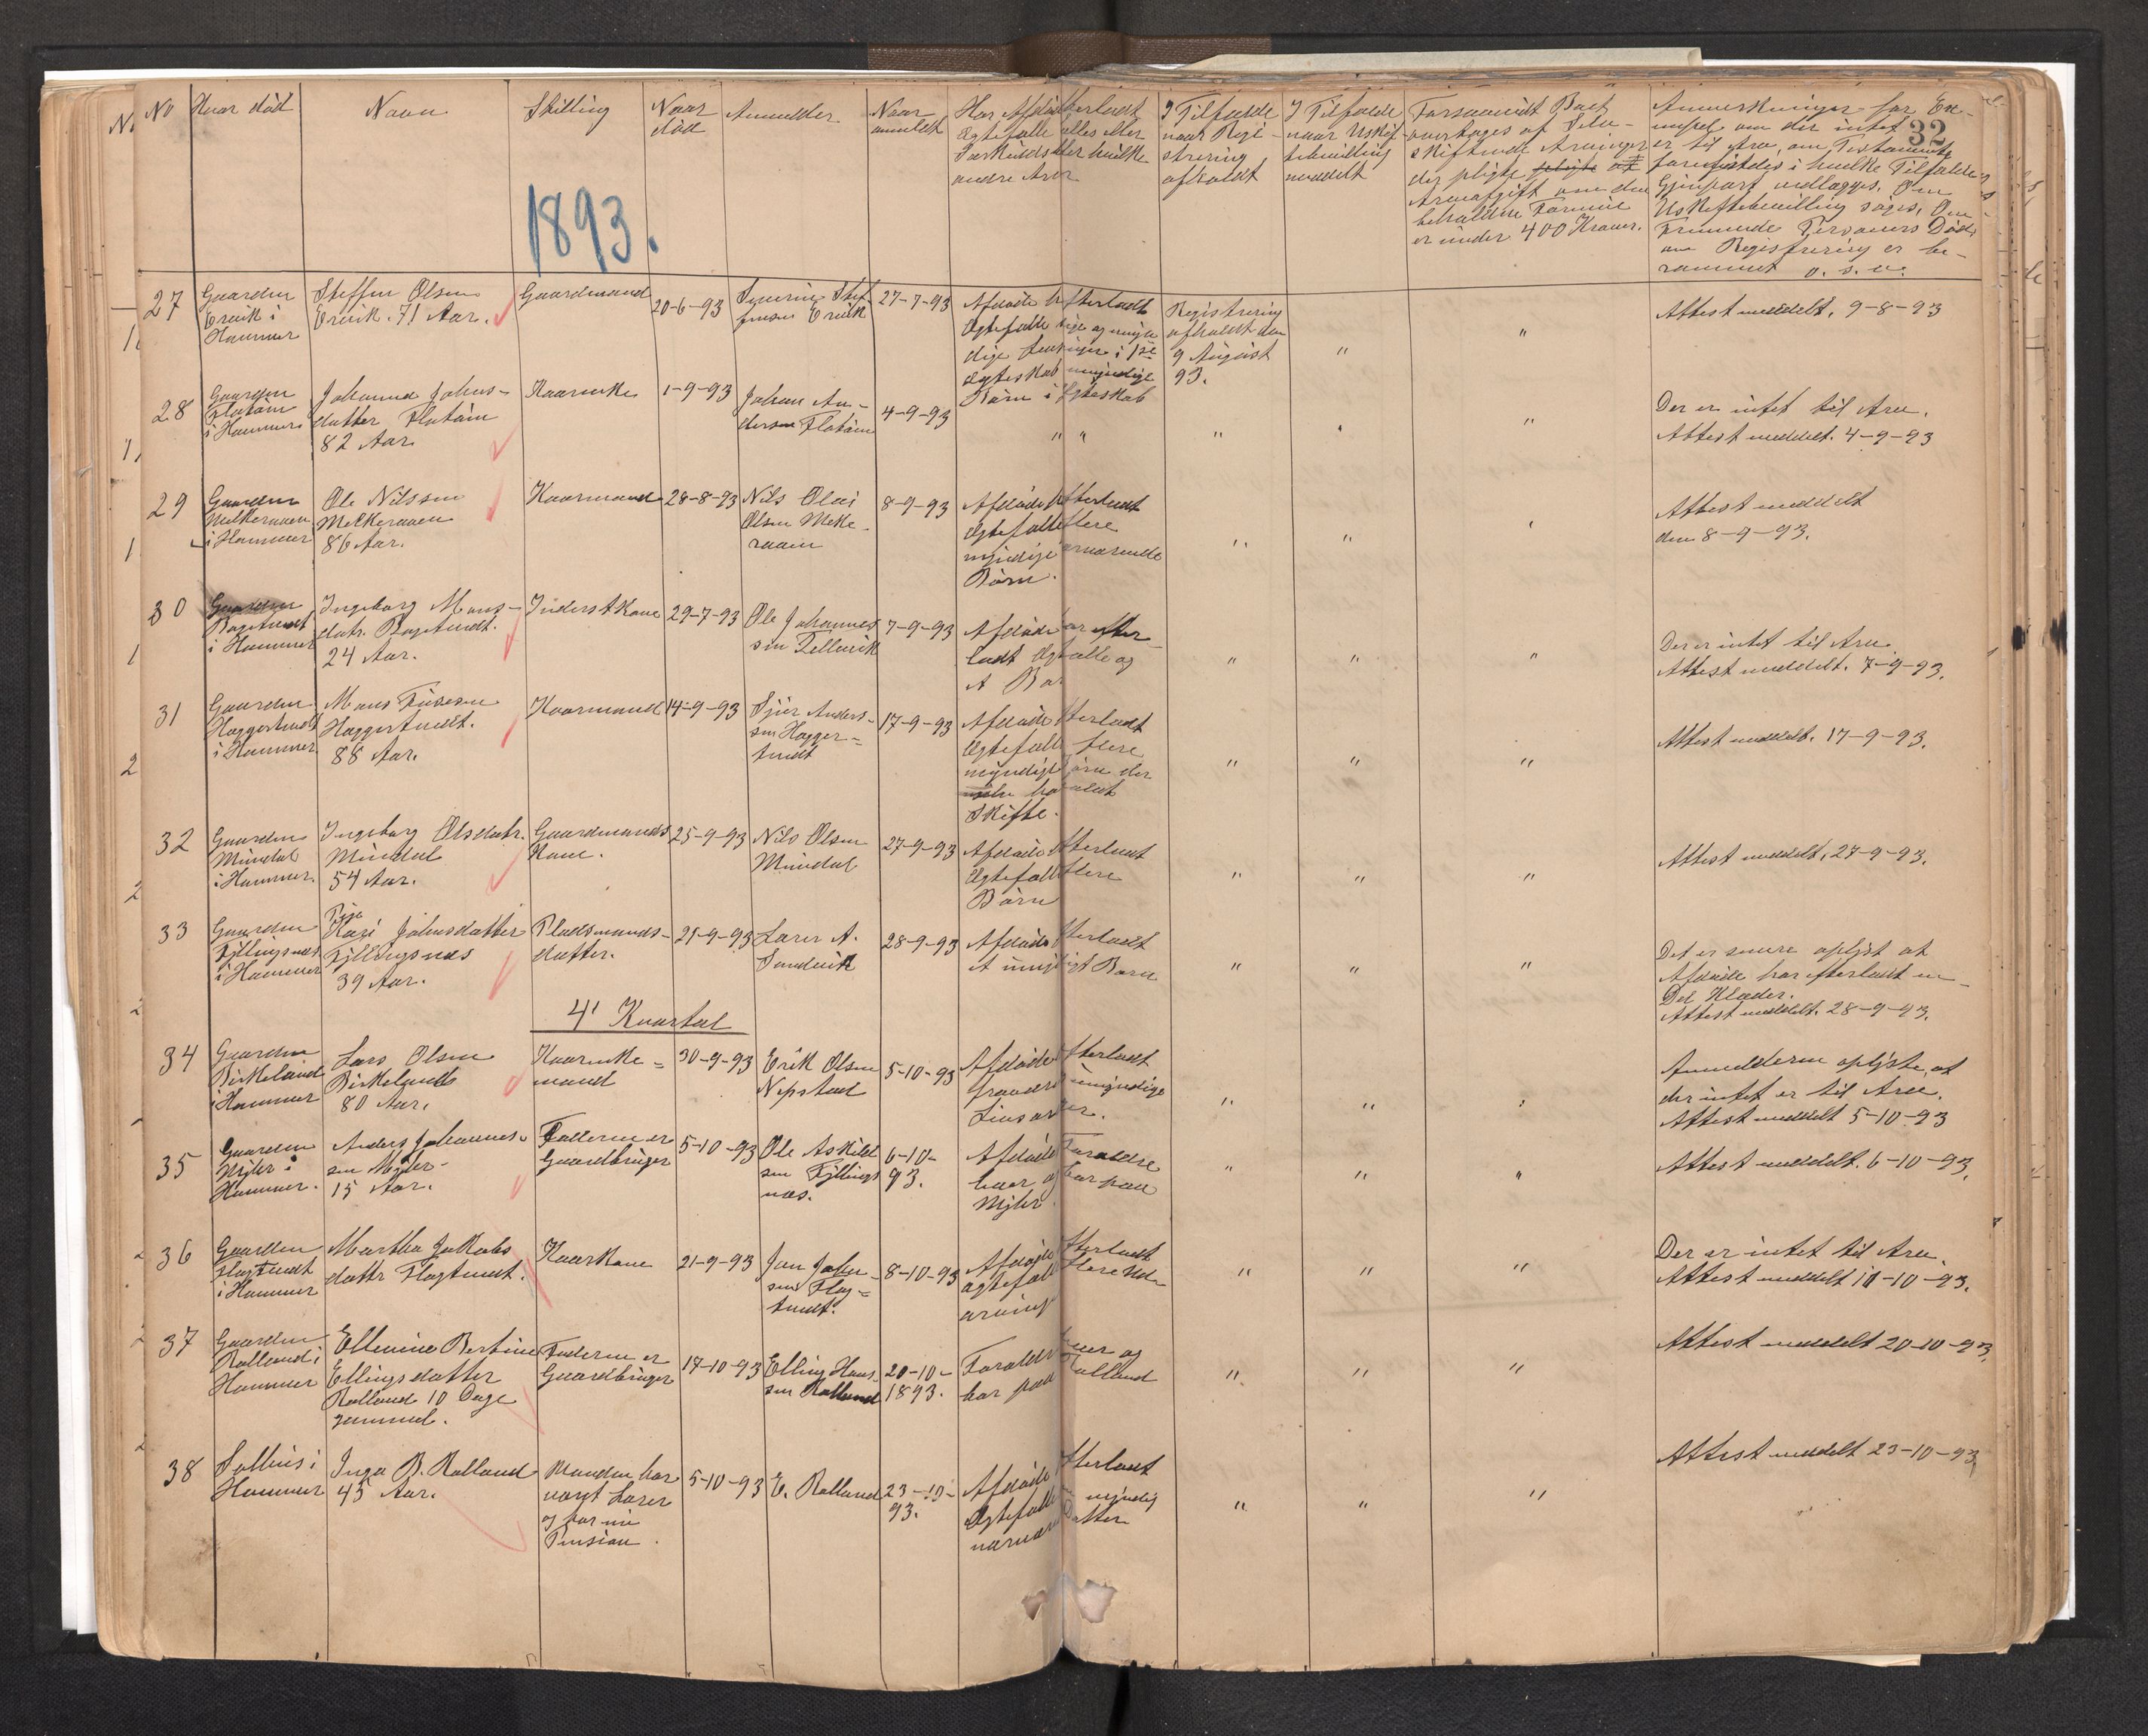 No
Hvor död
Navn
Stilling
Naar
död
Anmelder
Naar
anmeldt
Har Afdöde efterladt
Ægtefælle alles eller
Særkuldsbørn eller hvilke
andre Arv
I Tilfælde
naar Regi-
strering
afholdt
I Tilfælde
naar Uskif-
tebevilling
meddelt
Forsaavidt Boet
overtages af Selv-
skiftende Arvinger
der pligte
Arveafgift om den
beholdne Formue
er under 400 Kroner.
Anmerkninger for Ex-
empel om der intet
er til Arv, om Testamente
forefindes i hvilke Tilfælde
Gjenpart vedlægges. Om
Uskiftebevilling søges, Om
Fremmede Personers Död,
om Registrering er be-
rammet o. s. v.
32
1893.
27
Gaarden
Ervik i
Hammer
Steffen Olsen
Ervik. 71 Aar.
Gaardmand
20-6-93
Severin Stef-
fensen Ervik
27-7-93
Afdöde efterladt
Ægtefælle
Ægteskab umyndige
Börn i Ægteskab
Registrering
afholdt den
9 August
93.
"
"
Attest meddelt. 9-8-93
28
Gaarden
Flatöm
i Hammer
Johanna Johns-
datter Flatöm
82 Aar.
Kaarenke
1-9-93
Johan An-
dersen Flatöm
4-9-93
" "
"
"
"
Der er intet til Arv.
Attest meddelt. 4-9-93
29
Gaarden
Melkeraaen
i Hammer
Ole Nilssen
Melkeraaen
86 Aar.
Kaarmand
28-8-93
Nils Olai
Olsen Melke-
raaen
8-9-93
Afdöde efterladt
Ægtefælle flere
myndige nærværende
Börn.
"
"
"
Attest meddelt
den 8-9-93.
30
Gaarden
i Hammer
Ingeborg Mons-
datr.
24 Aar.
Inderstkone
29-7-93
Ole Johannes-
sen Tellevik
7-9-93
Afdöde har efter-
ladt Ægtefælle og
et Barn
"
"
"
Der er intet til Arv.
Attest meddelt. 7-9-93.
31
Gaarden
Haggertundt
i Hammer
Mons
Haggertundt.
88 Aar.
Kaarmand
14-9-93
Sjur Anders-
sen Hagger-
tundt
17-9-93
Afdöde efterladt
Ægtefælle flere
myndige Börn der
selv har holdt
Skifte.
"
"
"
Attest meddelt. 17-9-93.
32
Gaarden
Mundal
i Hammer.
Ingeborg Olsdatr.
Mundal
54 Aar.
Gaardmands
Kone.
25-9-93
Nils Olsen
Mundal
27-9-93
Afdöde efterladt
Ægtefælle flere
Börn
"
"
"
Attest meddelt, 27-9-93.
33
Gaarden
Fyllingsnæs
i Hammer
Pige
Kari Johnsdatter
Fyllingsnæs
39 Aar.
Pladsmands-
datter.
21-9-93
Larer A.
Sandvik
28-9-93
Afdöde efterladt
et umyndigt Barn
"
"
"
Det er senere oplyst at
Afdöde har efterladt en
Del Klæder.
Attest meddelt. 28-9-93.
4' Kvartal
34
Gaarden
Birkeland
i Hammer
Lars Olsen
Birkelands
80 Aar.
Kaarenke-
mand
30-9-93
Erik Olsen
Nepstad
5-10-93
Afdöde efterladt
fraværende umyndige
Livsarvinger.
"
"
"
Anmelderen oplyste, at
der intet er til Arv.
Attest meddelt 5-10-93
35
Gaarden
Mjler i
Hammer.
Anders Johannes-
sen Mjler-
15 Aar.
Faderen er
Gaardbruger
5-10-93
Ole Askild-
sen Fyllings-
næs.
6-10-
93.
Afdödes Forældre
lever og bor paa
Mjler.
"
"
"
Attest meddelt. 6-10-93.
36
Gaarden
Flagtundt
i Hammer
Martha Jakobs
datter Flagtundt.
Kaarkone
21-9-93
Jan John-
sen Flag-
tundt.
8-10-93
Afdöde efterladt
ægtefælle flere Uden
arvinger
"
"
"
Der er intet til Arv.
Attest meddelt 10-10-93.
37
Gaarden
Rolland i
Hammer
Ellevine Bertine
Ellingsdatter
Rolland 10 Dage
gammel.
Faderen er
Gaardbruger
17-10-93
Elling Hans-
sen Rolland
20-10-
1893.
Forældre lever og
bor paa Rolland
"
"
"
Attest meddelt 20-10-93.
38
Salhus i
Hammer
Inga B. Rolland
45 Aar.
Manden har
været Lærer
og har nu
Pension.
5-10-93
E. Rolland
23-10-
93.
Afdöde efterladt
Ægtefælle en myndig
nærværende Datter
"
"
"
Attest meddelt 23-10-93